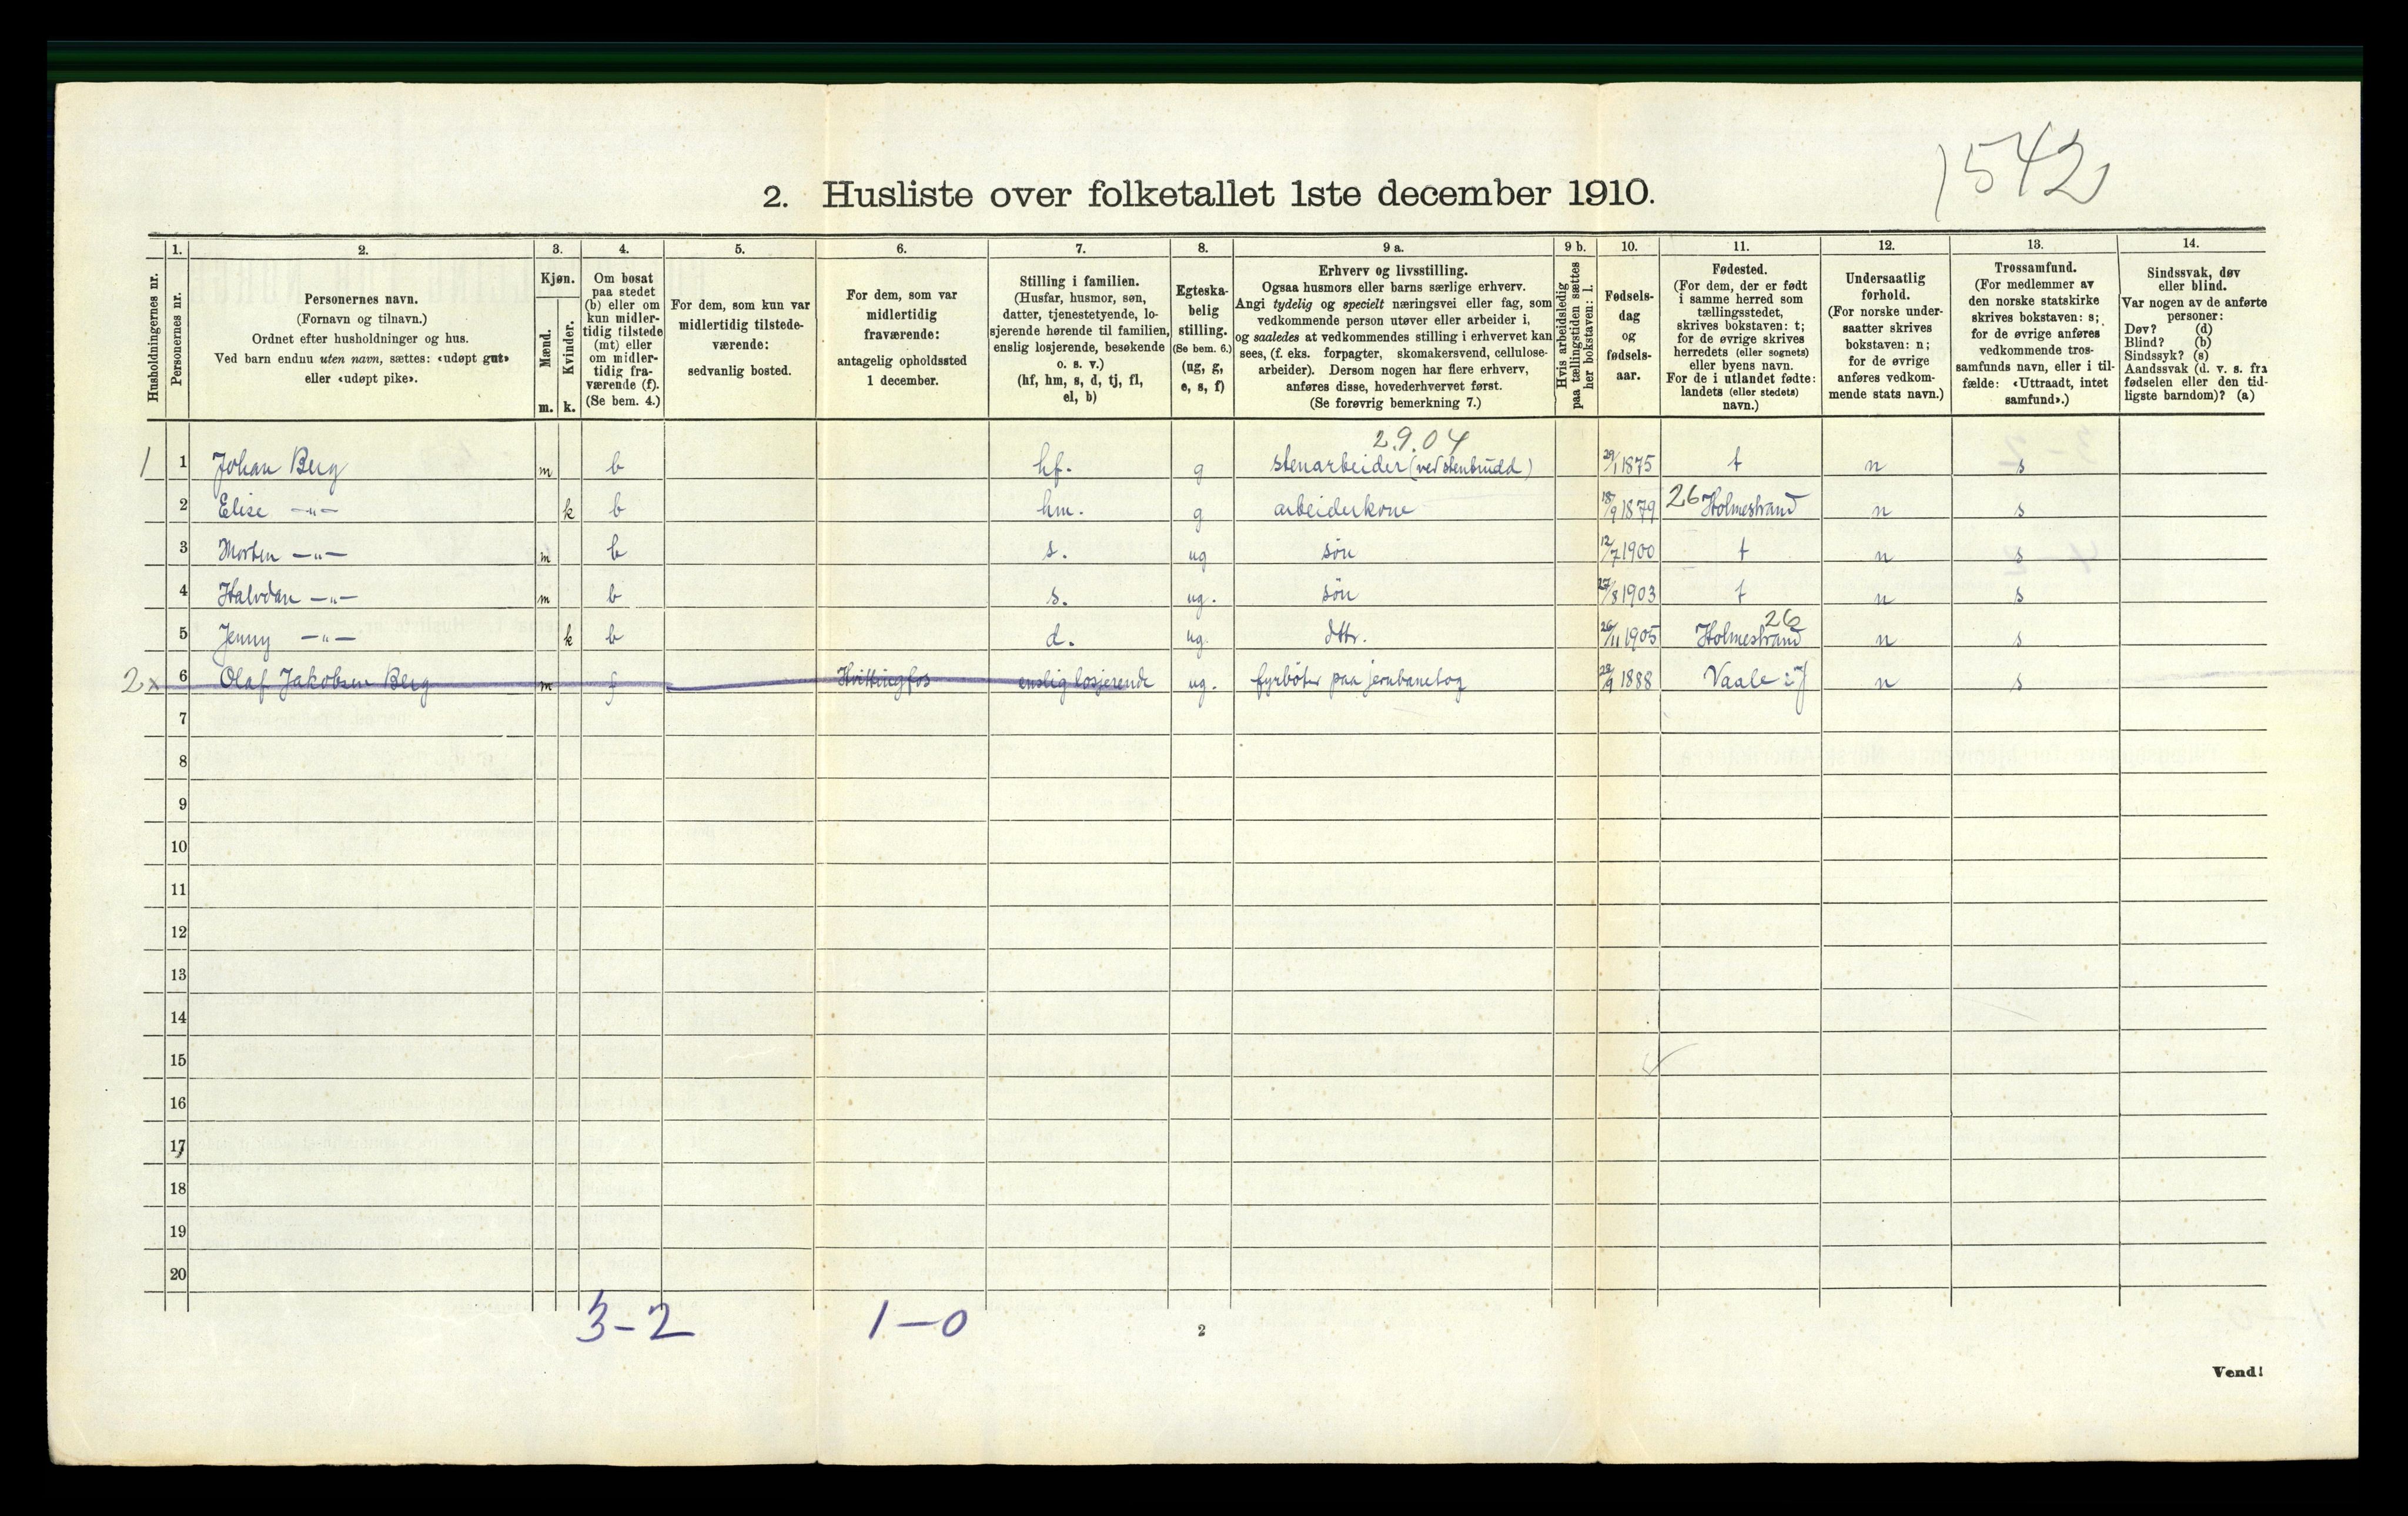 1542
2. Husliste over folketallet 1ste december 1910.
Husholdningernes nr.
1.
Personernes nr.
2.
Personernes navn.
(Fornavn og tilnavn.)
Ordnet efter husholdninger og hus.
Ved barn endnu uten navn, sættes: «udøpt gut»
eller «udøpt pike».
3.
Kjøn.
Mænd.
m.
Kvinder.
k.
4.
Om bosat
paa stedet
(b) eller om
kun midler-
tidig tilstede
(mt) eller
om midler-
tidig fra-
værende (f).
(Se bem. 4.)
5.
For dem, som kun var
midlertidig tilstede-
værende:
sedvanlig bosted.
6.
For dem, som var
midlertidig
fraværende:
antagelig opholdssted
1 december.
7.
Stilling i familien.
(Husfar, husmor, søn,
datter, tjenestetyende, lo-
sjerende hørende til familien,
enslig losjerende, besøkende
o. s. v.)
(hf, hm, s, d, tj, fl,
el, b)
8.
Egteska-
belig
stilling.
(Se bem. 6.)
(ug, g,
e, s, f)
9 a.
Erhverv og livsstilling.
Ogsaa husmors eller barns særlige erhverv.
Angi tydelig og specielt næringsvei eller fag, som
vedkommende person utøver eller arbeider i,
og saaledes at vedkommendes stilling i erhvervet kan
sees, (f. eks. forpagter, skomakersvend, cellulose-
arbeider). Dersom nogen har flere erhverv,
anføres disse, hovederhvervet først.
(Se forøvrig bemerkning 7.)
9 b.
Hvis arbeidsledig
paa tællingstiden sættes
her bokstaven: l.
10.
Fødsels-
dag
og
fødsels-
aar.
11.
Fødested.
(For dem, der er født
i samme herred som
tællingsstedet,
skrives bokstaven: t;
for de øvrige skrives
herredets (eller sognets)
eller byens navn.
For de i utlandet fødte:
landets (eller stedets)
navn.)
12.
Undersaatlig
forhold.
(For norske under-
saatter skrives
bokstaven: n;
for de øvrige
anføres vedkom-
mende stats navn.)
13.
Trossamfund.
(For medlemmer av
den norske statskirke
skrives bokstaven: s;
for de øvrige anføres
vedkommende tros-
samfunds navn, eller i til-
fælde: «Uttraadt, intet
samfund».)
14.
Sindssvak, døv
eller blind.
Var nogen av de anførte
personer:
Døv? (d)
Blind? (b)
Sindssyk? (s)
Aandssvak (d. v. s. fra
fødselen eller den tid-
ligste barndom)? (a)
2.9.04
1 1 Johan Berg m b hf. g stenarbeider (ved stenbrudd) 29/1 1875 t n s
2 Elise —„— k b hm. g arbeiderkone 18/9 1879 26 Holmestrand n s
3 Morten —„— m b s. ug søn 12/7 1900 t n s
4 Halvdan —„— m b s. ug. søn 27/8 1903 t n s
26
5 Jenny —„— k b d. ug. dttr. 26/11 1905 Holmestrand n s
2x 6 Olaf Jakobsen Berg m f Hvittingfos enslig losjerende ug. fyrbøter paa jernbanetog 28/9 1888 Vaale n s
7
8
9
10
11
12
13
14
15
16
17
18
19
20
3-2 1-0
2
Vend!